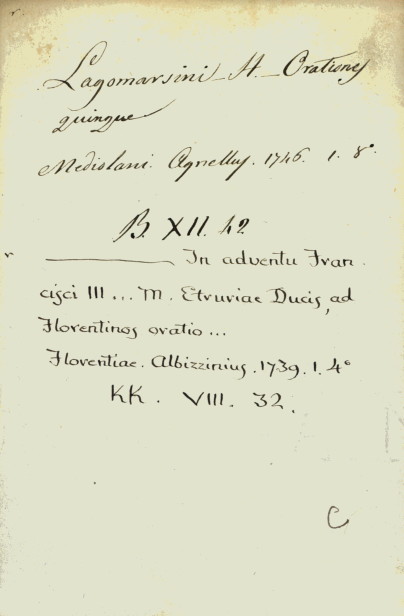 Lagomarsini H. Orationes
quinque
Mediolani. Agnellus. 1746. 1. 8°.
B. XII. 42
——— In adventu Fran-
cisci III... M. Etruriae Ducis, ad
Florentinos oratio...
Florentiae. Albizzinius. 1739. 1. 4°
KK. VIII. 32.
C